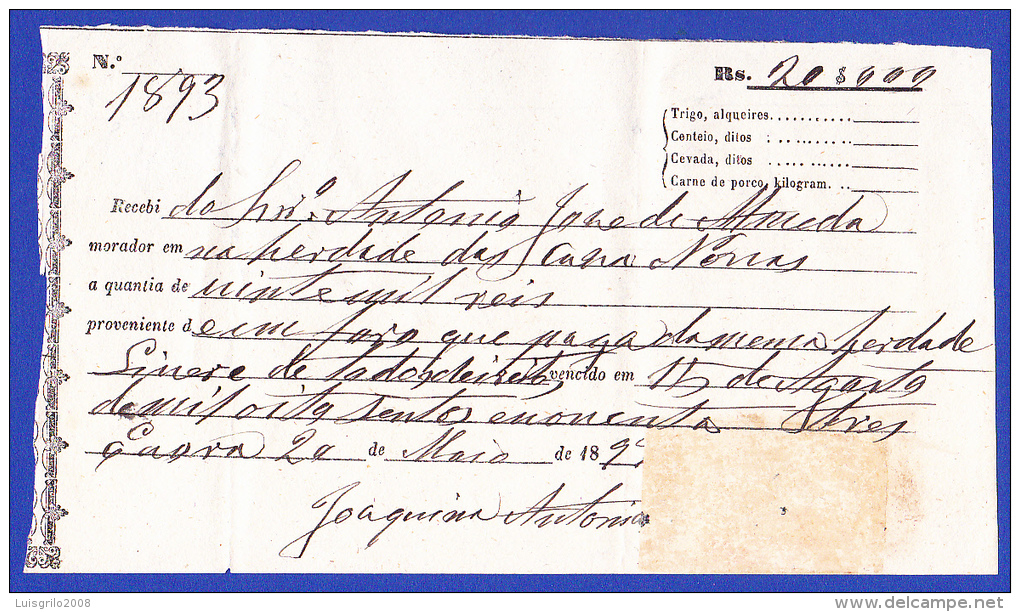 N.º
1893
Rs. 20$000
Trigo, alqueires
Conteio, ditos
Cevada, ditos
Carne de porco, kilogram.
Recebi do Snrº. Antonio Joze de Almeda
morador em na herdade das Caza Novas
a quantia de vinte mil reis
proveniente de um foro que paga da mema herdade
Livere de todos deireitos vencido em 15 de Agosto
de mil oito sentos e nonenta e tres
20 de Maio de 189
Joaquina Antonia
Luisgrilo2008
delcampe.net